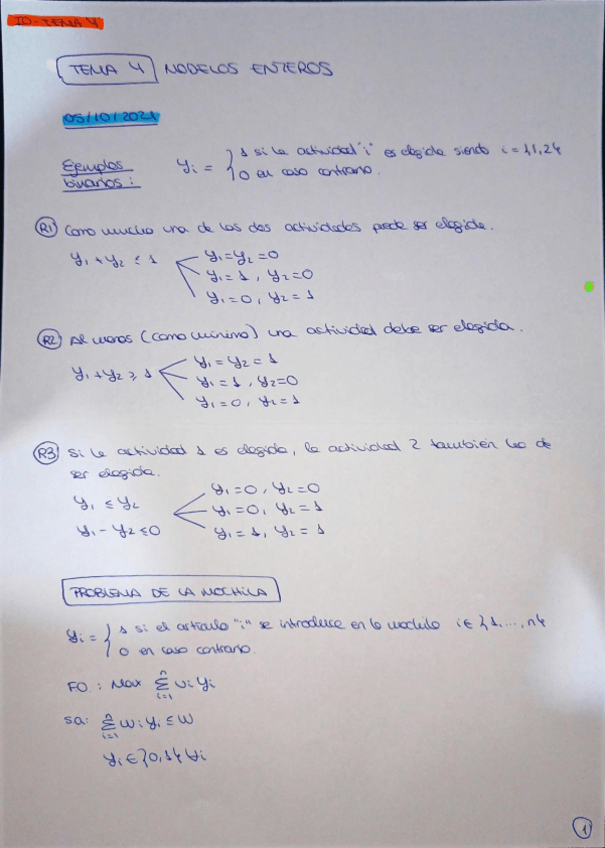 IO - TEMA 4
TEMA 4 MODELOS ENTEROS
05/10/2021
Ejemplos binarios: yi = { 1 si la actividad "i" es elegida siendo i = {1,2}
0 en caso contrario.
R1 Como mucho una de las dos actividades puede ser elegida.
y1 + y2 ≤ 1
y1 = y2 = 0
y1 = 1, y2 = 0
y1 = 0, y2 = 1
R2 Al menos (como mínimo) una actividad debe ser elegida.
y1 + y2 ≥ 1
y1 = y2 = 1
y1 = 1, y2 = 0
y1 = 0, y2 = 1
R3 Si la actividad 1 es elegida, la actividad 2 también ha de
ser elegida.
y1 ≤ y2
y1 - y2 ≤ 0
y1 = 0, y2 = 0
y1 = 0, y2 = 1
y1 = 1, y2 = 1
PROBLEMA DE LA MOCHILA
yi = { 1 si el artículo "i" se introduce en la mochila i ∈ {1, ..., n}
0 en caso contrario.
FO: Max ∑ i=1 n vi yi
sa: ∑ i=1 n wi yi ≤ W
yi ∈ {0,1} ∀i
1